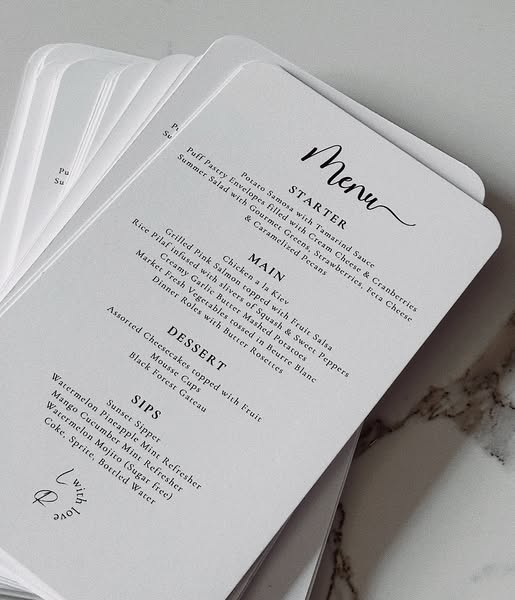 Menu
STARTER
Potato Samosa with Tamarind Sauce
Puff Pastry Envelopes filled with Cream Cheese & Cranberries
Summer Salad with Gourmet Greens, Strawberries, Feta Cheese
& Caramelized Pecans
MAIN
Chicken a la Kiev
Grilled Pink Salmon topped with Fruit Salsa
Rice Pilaf infused with slivers of Squash & Sweet Peppers
Creamy Garlic Butter Mashed Potatoes
Market Fresh Vegetables tossed in Beurre Blanc
Dinner Roles with Butter Rosettes
DESSERT
Assorted Cheesecakes topped with Fruit
Mousse Cups
Black Forest Gateau
SIPS
Sunset Sipper
Watermelon Pineapple Mint Refresher
Mango Cucumber Mint Refresher
Watermelon Mojito (Sugar free)
Coke, Sprite, Bottled Water
L with love R
Pu
Su
Pu
Su